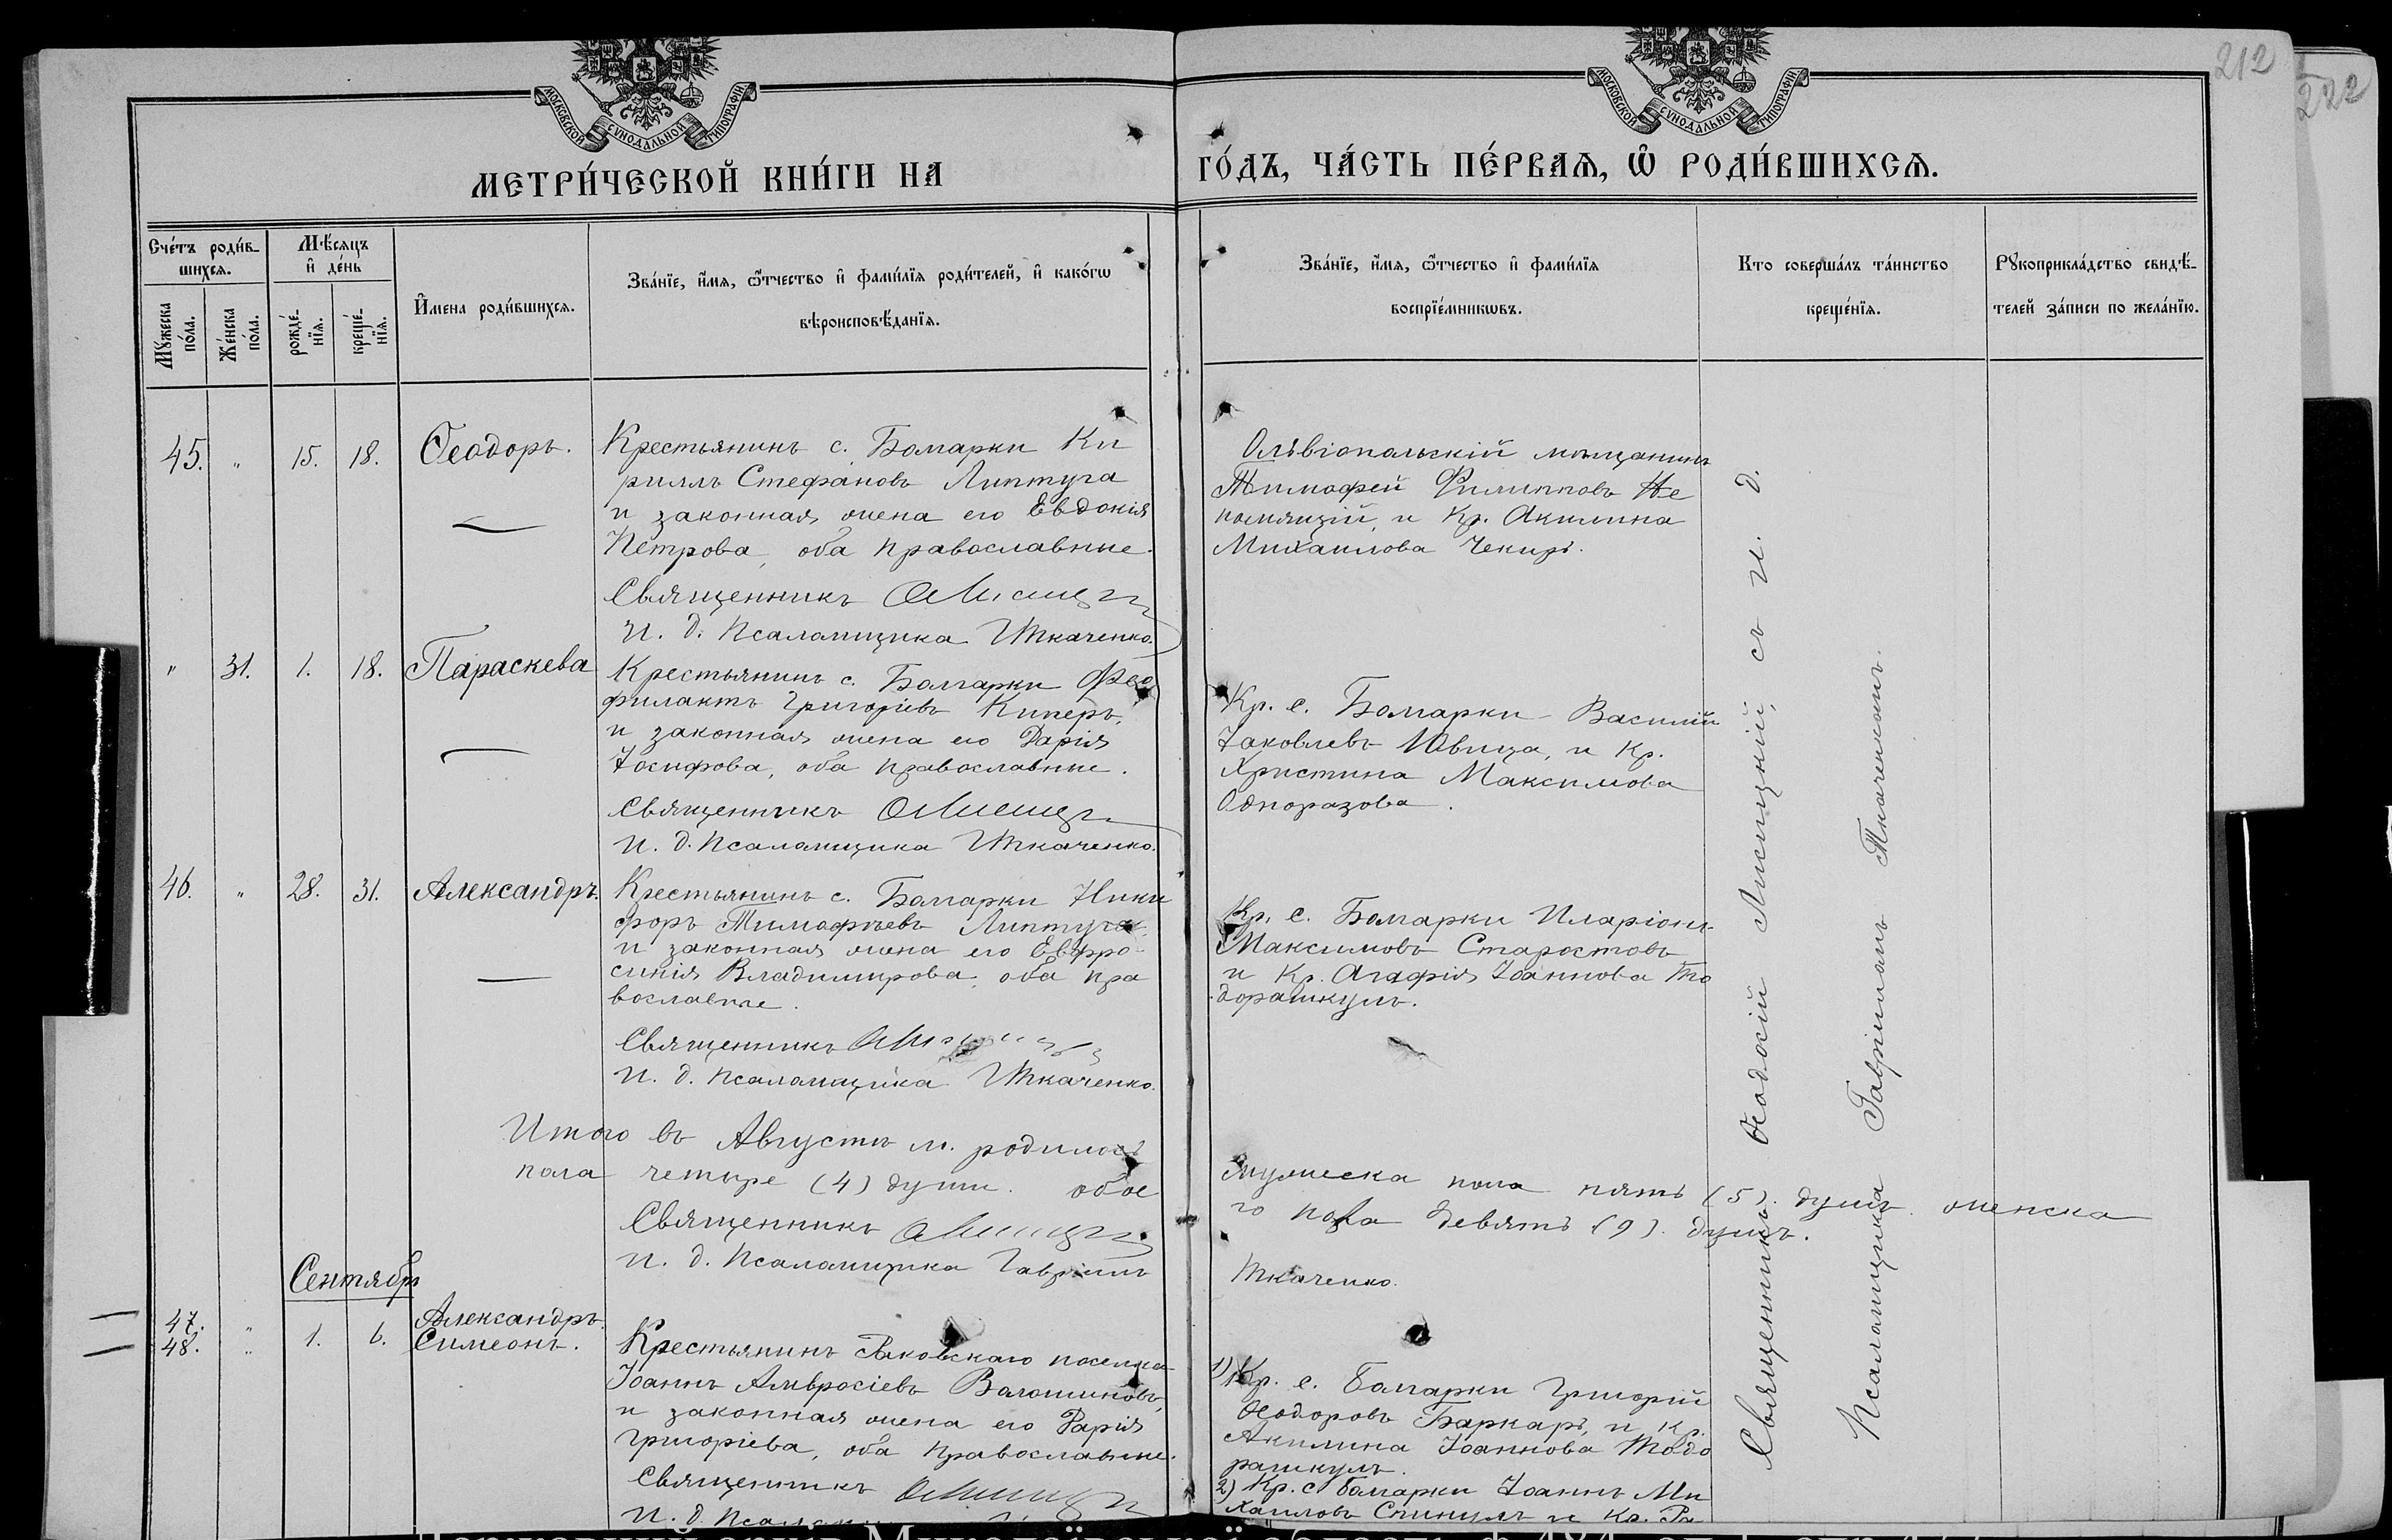 212
222
МОСКОВСКОЙ СУНОДАЛЬНОЙ ТИПОГРАФІИ
МОСКОВСКОЙ СУНОДАЛЬНОЙ ТИПОГРАФІИ
МЕТРИ́ЧЕСКОЙ КНИ́ГИ НА
ГО́ДЪ, ЧА́СТЬ ПЕ́РВАѦ, Ѡ҆ РОДИ́ВШИХСѦ.
Сче́тъ роди́в-
шихсѧ.
Мꙋ́жеска по́ла.
Же́нска по́ла.
Мѣ́сѧцъ
и҆ де́нь
рожде́-
нїѧ.
креще́-
нїѧ.
И҆мена роди́вшихсѧ.
Зва́нїе, и҆́мѧ, ѻ҆́тчество и҆ фами́лїѧ роди́телей, и҆ како́гѡ
вѣроисповѣ́данїѧ.
Зва́нїе, и҆́мѧ, ѻ҆́тчество и҆ фами́лїѧ
воспрїе́мникѡвъ.
Кто соверша́лъ та́инство
креще́нїѧ.
Рꙋкоприкла́дство свидѣ́-
телей за́писи по жела́нїю.
45. " 15. 18. Ѳеодоръ.
Крестьянинъ с. Болгарки Ки
риллъ Стефановъ Липтуга
и законная жена его Евдокія
Петрова, оба православные.
Священникъ
И. д. Псаломщика Ткаченко.
Ольвіопольскій мѣщанинъ
Тимофей Филипповъ Не
помнящій, и Кр. Акилина
Михаилова Чекиръ.
" 31. 1. 18. Параскева
Крестьянинъ с. Болгарки Ѳео
филактъ Григоріевъ Киперъ,
и законная жена его Дарія
Іосифова, оба православные.
Священникъ
И. д. Псаломщика Ткаченко.
Кр. с. Болгарки Василій
Іаковлевъ Ивица, и Кр.
Христина Максимова
Одноразова.
46. " 28. 31. Александръ.
Крестьянинъ с. Болгарки Ники
форъ Тимофѣевъ Липтуга
и законная жена его Евфро-
синія Владимирова, оба пра
вославные.
Священникъ
И. д. Псаломщика Ткаченко.
Кр. с. Болгарки Иларіонъ
Максимовъ Старостовъ
и Кр. Агафія Іоаннова То
дорашкулъ.
Итого въ Августѣ м. родилось мужеска пола пять (5) душъ. женска
пола четыре (4) души. обое го пола девять (9) душъ.
Священникъ
И. д. Псаломщика Гавріилъ Ткаченко.
Сентябрь
47. " Александръ.
48. " 1. 6. Симеонъ.
Крестьянинъ поселка
Іоаннъ Амвросіевъ Волошиновъ,
и законная жена его Дарія
Григоріева, оба православные.
Священникъ
И. д. Псалом
1) Кр. с. Болгарки Григорій
Ѳеодоровъ Баркарь, и Кр.
Акилина Іоаннова Тодо
рашкулъ.
2) Кр. с. Болгарки Іоаннъ Ми
хаиловъ Спинулъ и Кр.
Священникъ Ѳеодосій Лисицкій, съ И. д.
Псаломщика Гавріиломъ Ткаченкомъ.